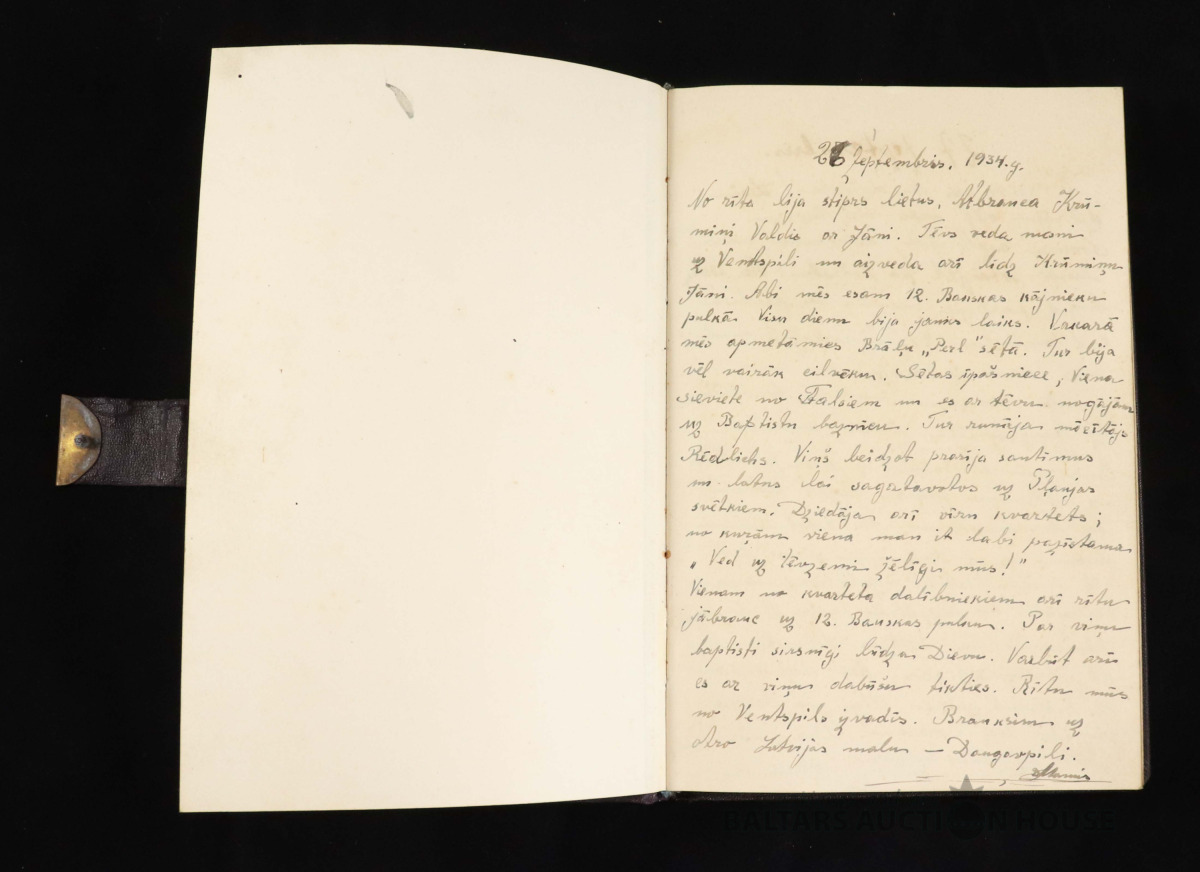 26 septembris. 1934.g.
No rīta lija stiprs lietus. Atbrauca Krū-
miņi Valdis ar Jāni. Tēvs veda mani
uz Ventspili un aizveda arī līdz Krūmiņu
Jāni. Abi mēs esam 12. Bauskas kājnieku
pulkā. Visu dienu bija jauks laiks. Vakarā
mēs apmetāmies Brāļu „Perl" sētā. Tur bija
vēl vairāk cilvēku. Sētas īpašniece, Viena
sieviete no Talsiem un es ar tēvu nogājām
uz Baptistu baznicu. Tur runāja mācītājs
Rēdlichs. Viņš beidzot prasīja santimus
un latus lai sagatavotos uz Pļaujas
svētkiem. Dziedāja arī vīru kvartets;
no kuŗām viena man it labi pazīstama
„Ved uz tēvzemi žēlīgi mūs!"
Vienam no kvarteta dalībniekiem arī rītu
jābrauc uz 12. Bauskas pulku. Par viņu
baptisti sirsnīgi lūdza Dievu. Varbūt arī
es ar viņu dabūšu tikties. Rītu mūs
no Ventspils izvadīs. Brauksim uz
otro Latvijas malu — Daugavpili.
BALTARS AUCTION HOUSE